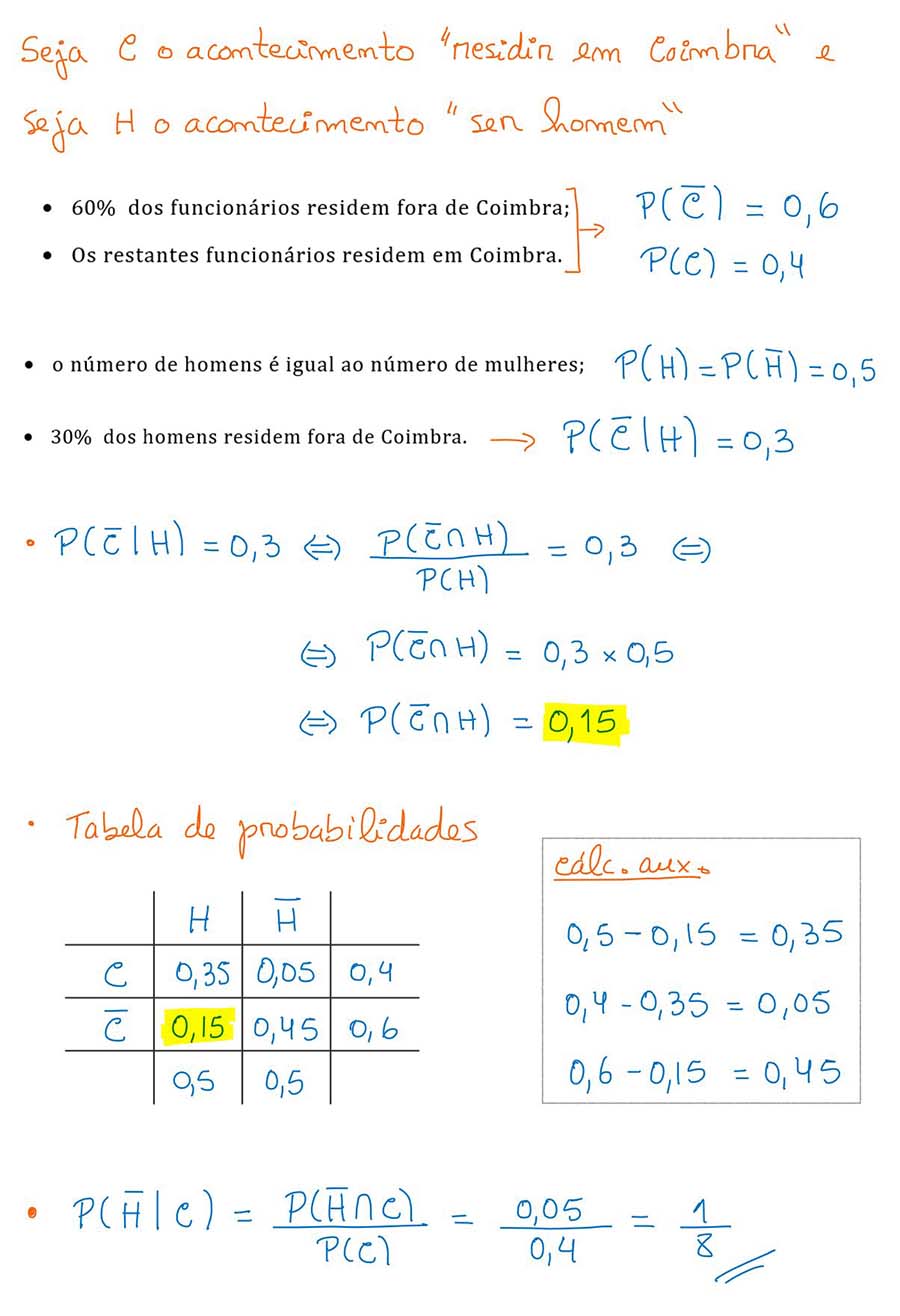 Seja C o acontecimento "residir em Coimbra" e
seja H o acontecimento "ser homem"
• 60% dos funcionários residem fora de Coimbra; P(C̅) = 0,6
• Os restantes funcionários residem em Coimbra. → P(C) = 0,4
• o número de homens é igual ao número de mulheres; P(H) = P(H̅) = 0,5
• 30% dos homens residem fora de Coimbra. → P(C̅|H) = 0,3
• P(C̅|H) = 0,3 ⇔ P(C̅∩H)/P(H) = 0,3 ⇔
⇔ P(C̅∩H) = 0,3 × 0,5
⇔ P(C̅∩H) = 0,15
• Tabela de probabilidades
H H̅
C 0,35 0,05 0,4
C̅ 0,15 0,45 0,6
0,5 0,5
cálc. aux.
0,5 - 0,15 = 0,35
0,4 - 0,35 = 0,05
0,6 - 0,15 = 0,45
• P(H̅|C) = P(H̅∩C)/P(C) = 0,05/0,4 = 1/8